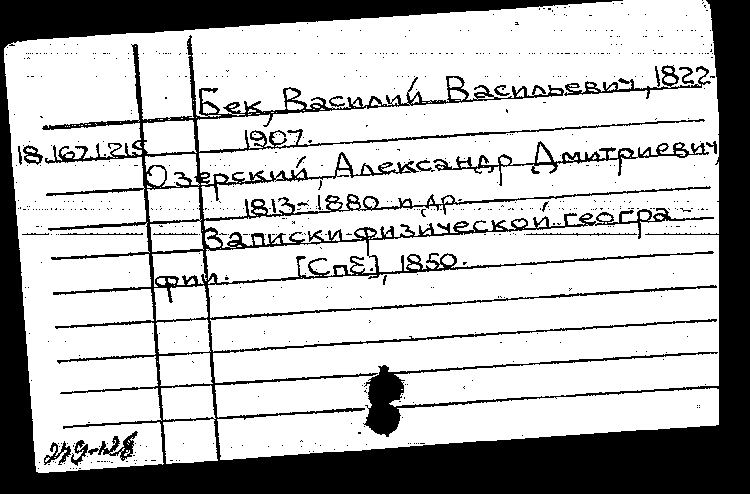 Бек, Василий Васильевич, 1822-
1907.
18.167.1.215
Озерский, Александр Дмитриевич,
1813-1880 и др.
Записки физической геогра-
фии. [Спб.], 1850.